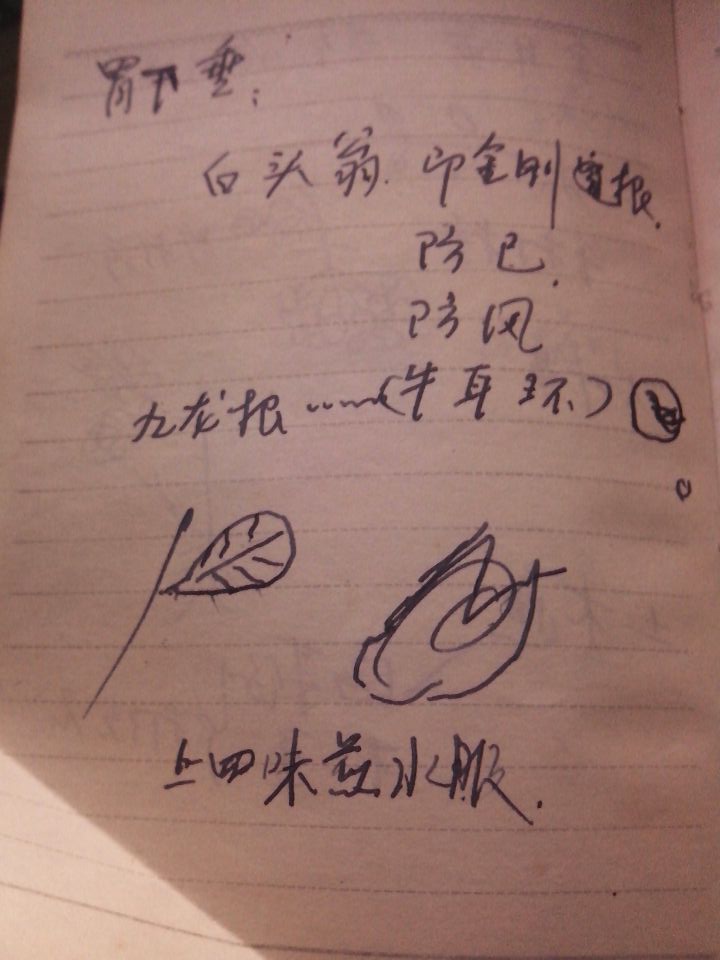 胃下垂:
白头翁. 印金刚根.
防已.
防风
九龙根……(牛耳环)
上四味煎水服.